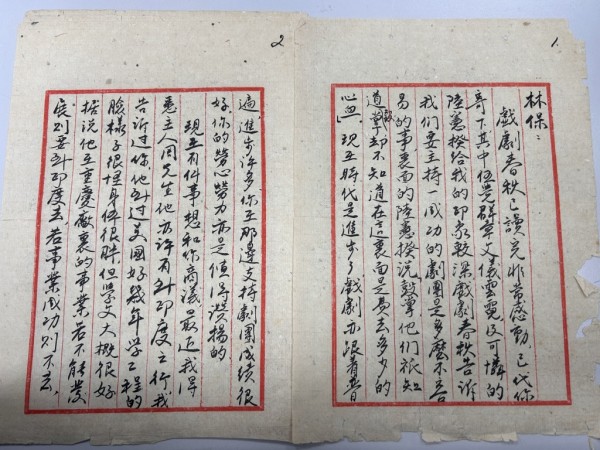 1.
林保：
戲劇春秋已讀完非常感動已代你
寄下其中伍覺群文儀雲霓及可憐的
陸憲揆給我的印象較深戲劇春秋告訴
我們要主持一成功的劇團是多麼不容
易的事裏面的陸憲揆說 他們祇知
道鼓掌却不知道在這裏面是費去多少的
心血」現在時代是進步了戲劇亦跟着普
2
遍進步許多你在那邊支持劇團成績很
好你的勞心勞力亦是值得讚揚的
現在有件事想和你商議最近我得
悉主人周先生他亦许有到印度之行我
告訴过你他到过美國好幾年學工程的
臉樣子很 身体很胖但學文大概很好
据说他在重慶廠裏的事業若不能發
展则要到印度去若事業成功则不去，